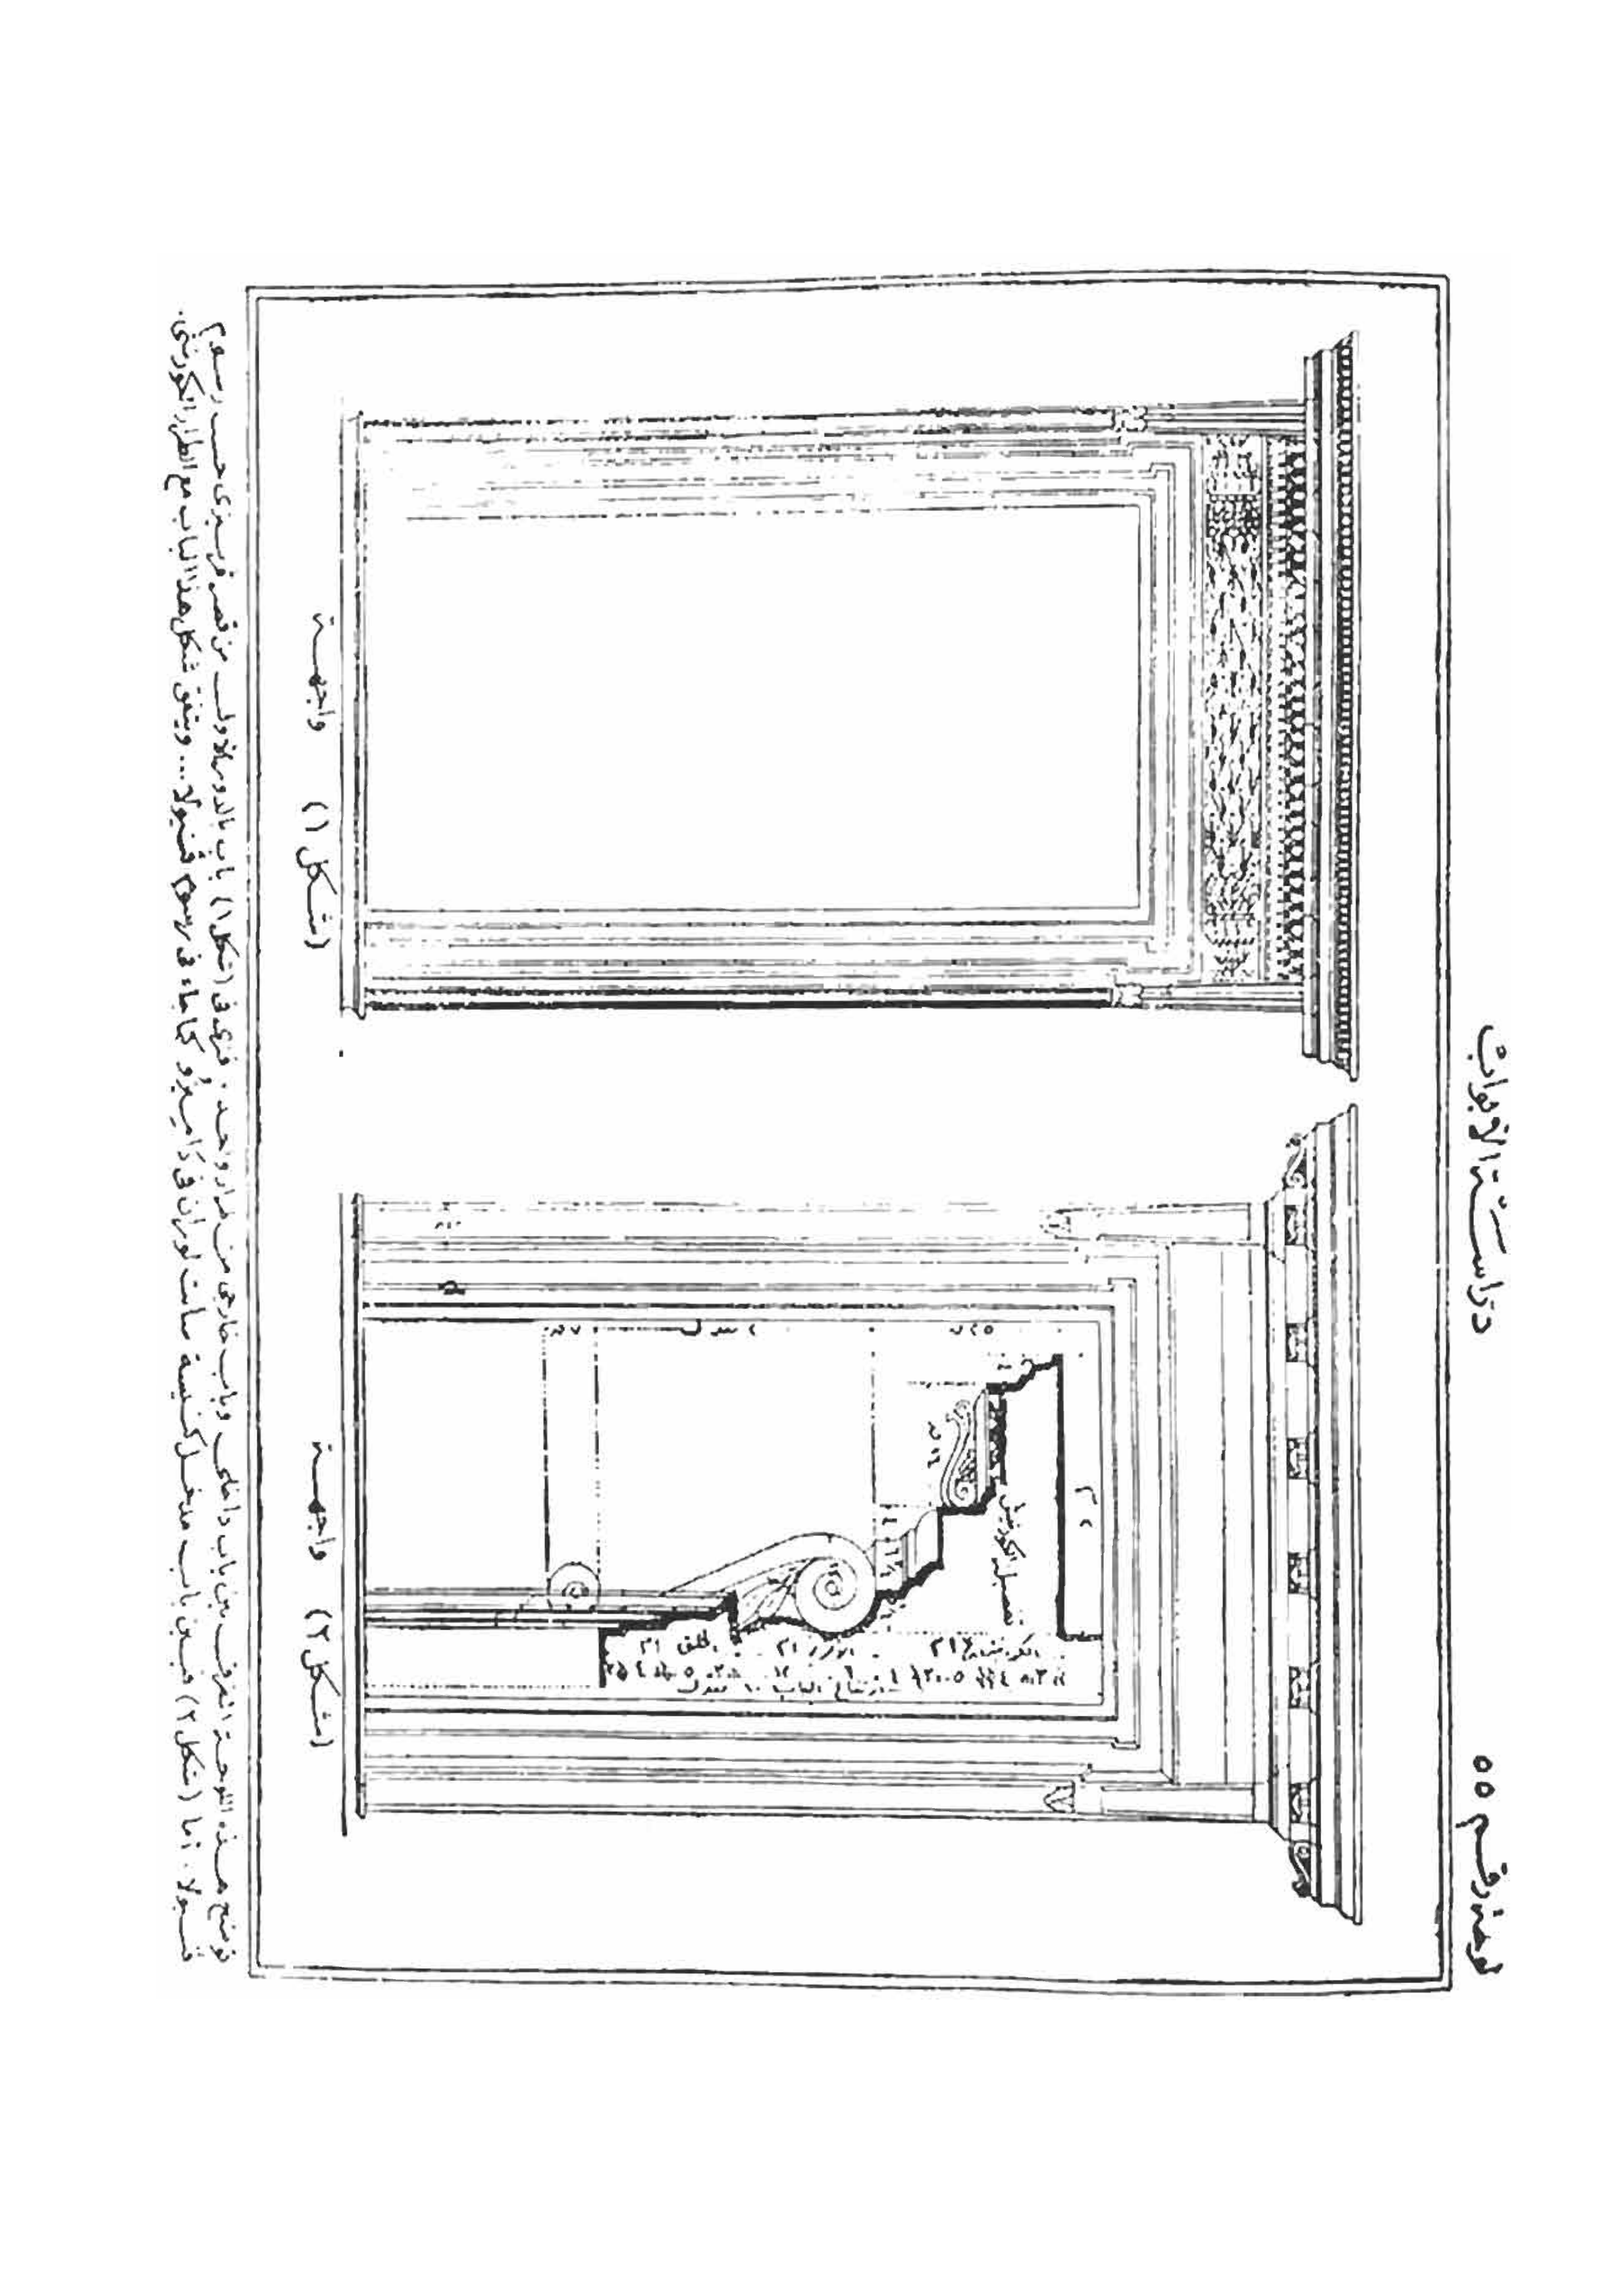 لوحة رقم ٥٥
دراسة الأبواب
(شكل ٢) واجهة
(شكل ١) واجهة
تفصيل الكورنيش
توضح هذه اللوحة الفرق بين باب داخلى وباب خارجى من طراز واحد . فنرى فى (شكل ١) باب بالدور الأول من قصر فرنيزى حسب رسوم
فنيولا . أما (شكل ٢) فيبين باب مدخل كنيسة سانت لوران فى داميزو كما جاء فى رسوم فنيولا ... ويتفق شكل هذا الباب مع الطراز الكورنثى .